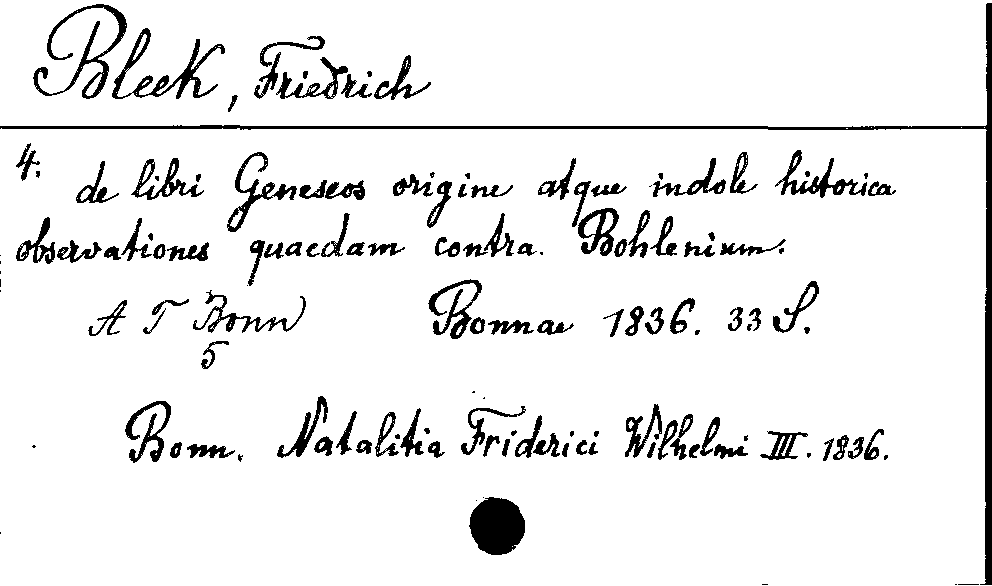 Bleek, Friedrich
4: de libri Geneseos origine atque indole historica
observationes quaedam contra. Bohlenium.
A T Bonn Bonnae 1836. 33 S.
5
Bonn. Natalitia Friderici Wilhelmi III. 1836.